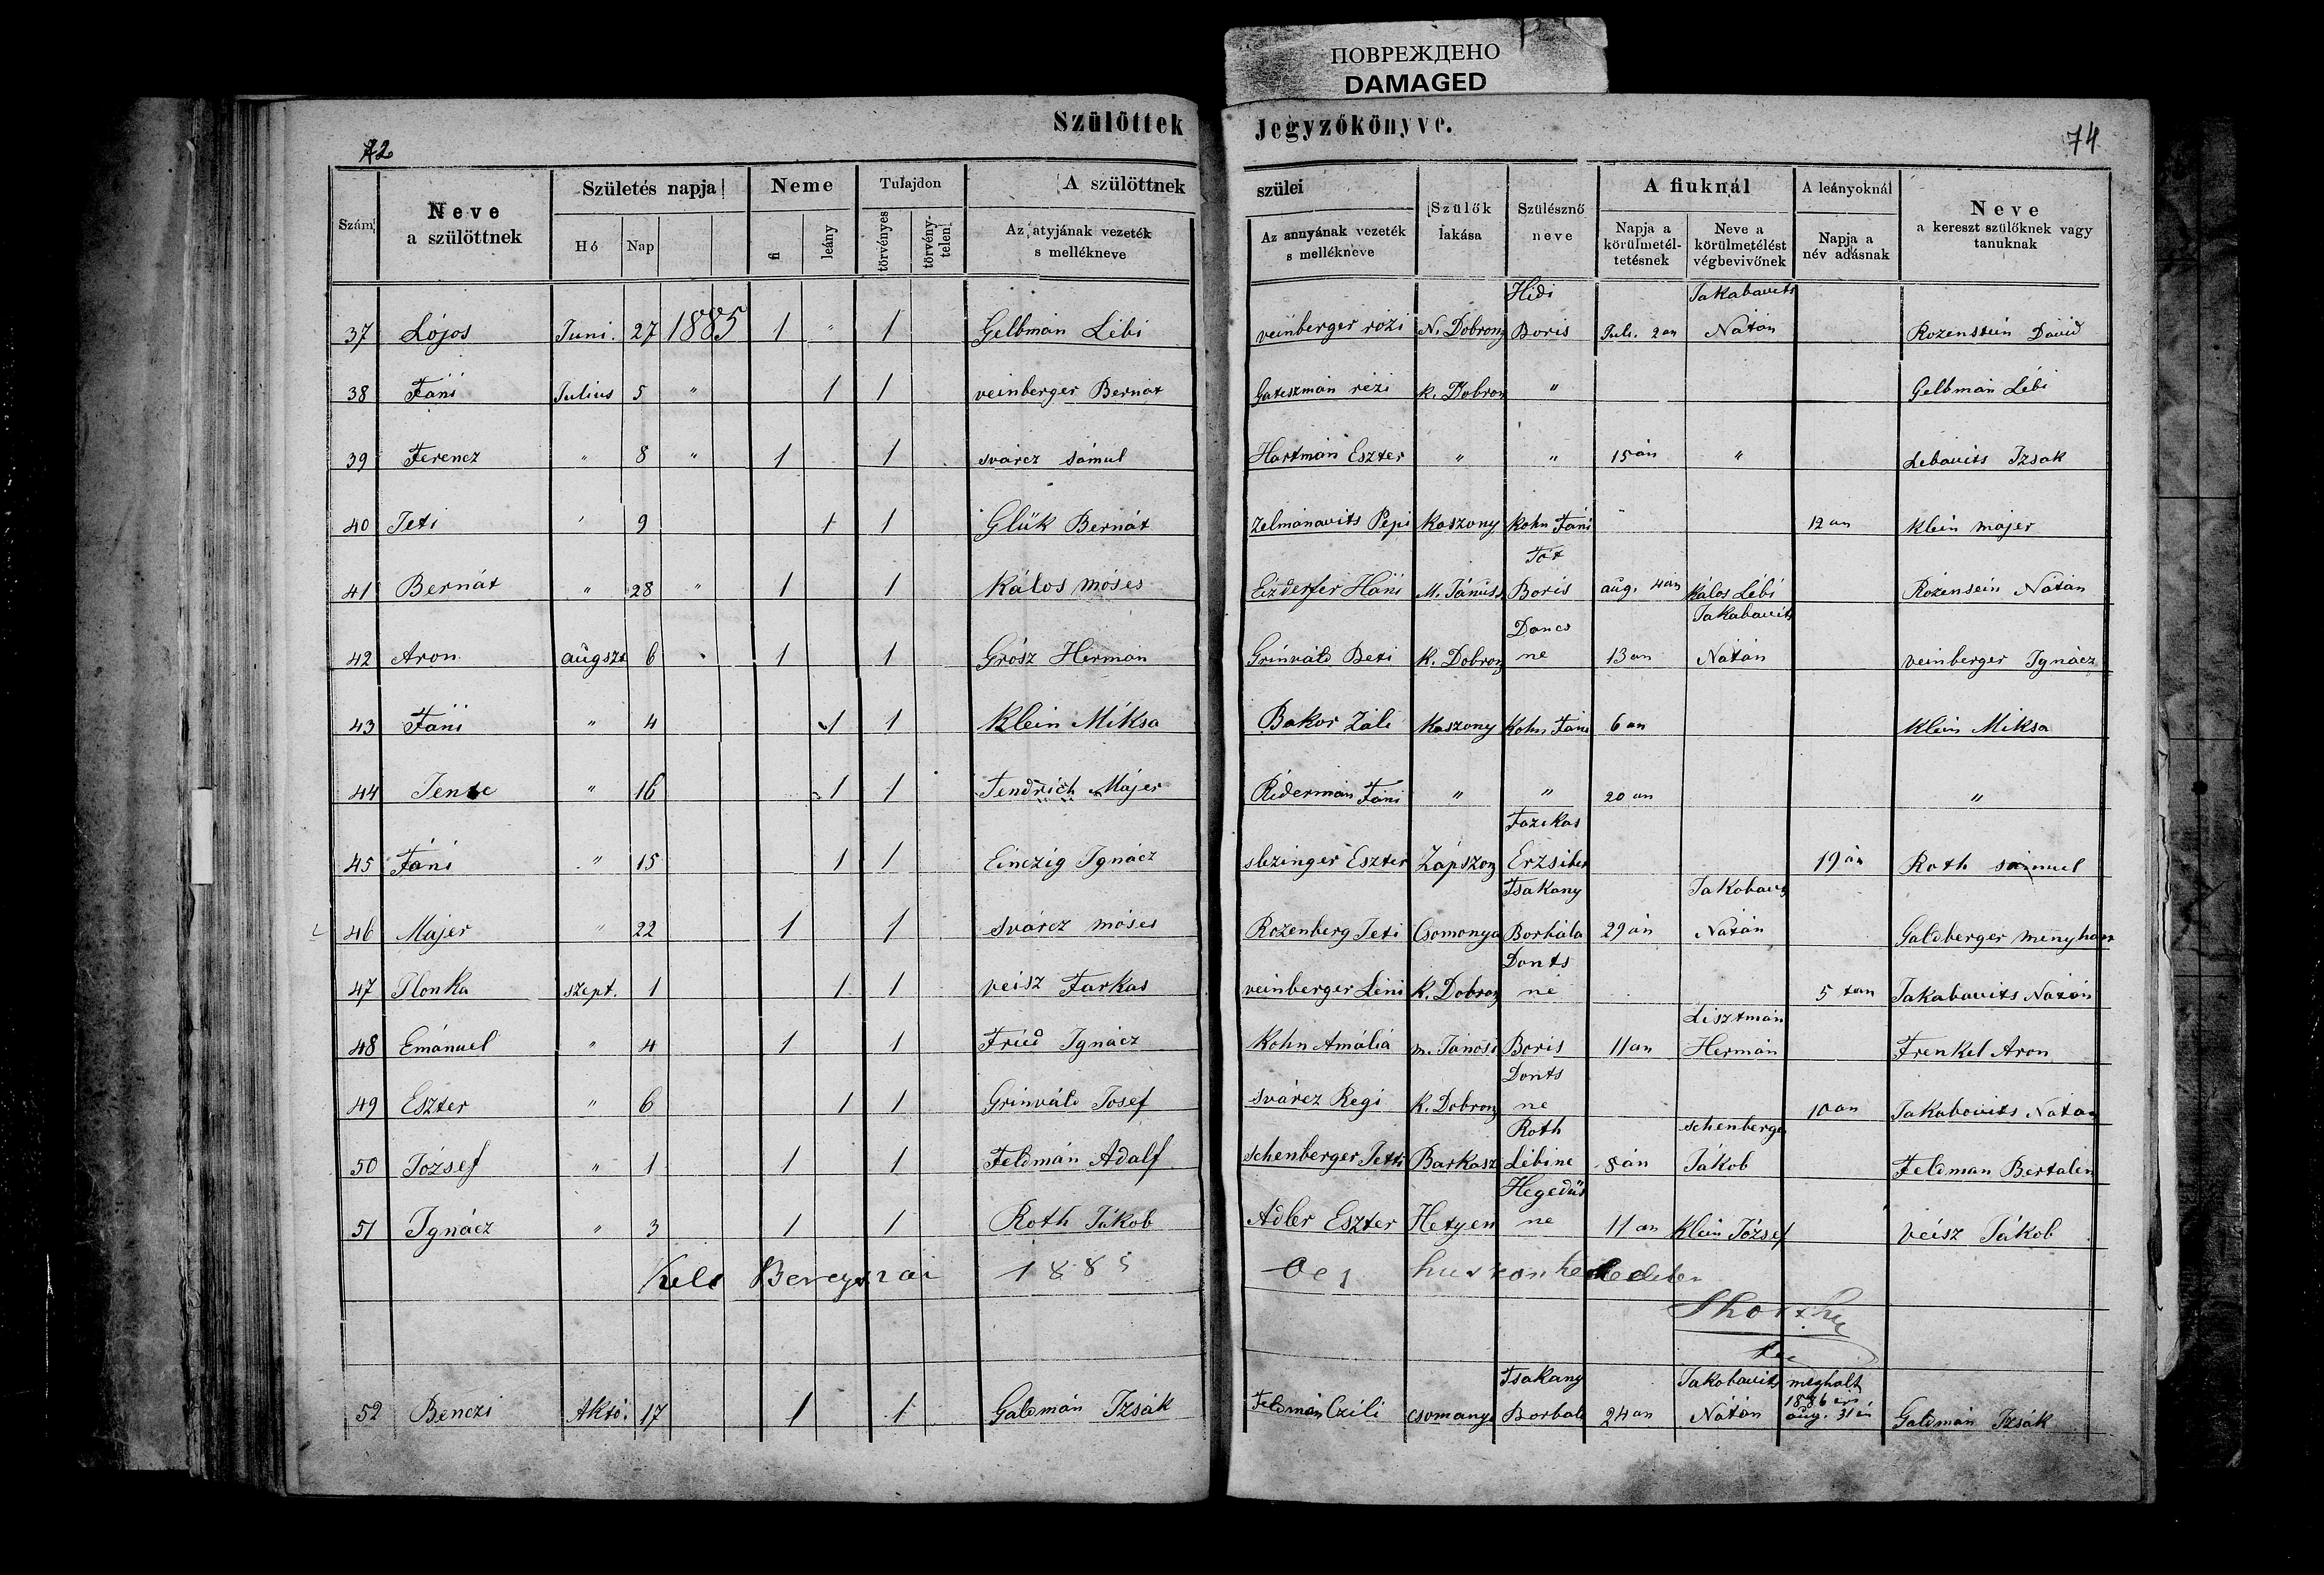 ПОВРЕЖДЕНО
DAMAGED
Szülöttek Jegyzőkönyve.
72 74
Szám Neve a szülöttnek Születés napja Hó Nap Neme fi leány Tulajdon törvényes törvénytelen A szülöttnek szülei Az atyjának vezeték s mellékneve Az annyának vezeték s mellékneve Szülők lakása Szülésznő neve A fiuknál Napja a körülmetéltetésnek Neve a körülmetélést végbevivőnek A leányoknál Napja a név adásnak Neve a kereszt szülőknek vagy tanuknak
37 Lójos Juni. 27 1885 1 " 1 Gelbmán Lébi veinberger rózi N. Dobrony Hidi Boris Juli. 2an Jakabavits Nátán Rozenstein Dávid
38 Fáni Julius 5 " 1 1 veinberger Bernát Gateszmán rézi K. Dobrony " Gelbmán Lébi
39 Ferencz " 8 " 1 1 svárcz sámul Hartmán Eszter " " 15án " Lebavits Izsák
40 Jeti " 9 1 1 Glük Bernát Zelmánavits Pepi Kaszony Kohn Fáni 12an Klein májer
41 Bernát " 28 " 1 1 Kálos móses Eizderfer Háni M. Jánusi Tót Boris aug. 4án Kálos Lébi Rózensein Nátán
42 Aron augszt 6 " 1 1 Grósz Hermán Grinváld Beti K. Dobrony Dancs ne 13an Jakabavits Nátán veinberger Ignácz
43 Fáni " 4 1 1 Klein Miksa Bakor Záli Kaszony Kohn Fáni 6an Klein Miksa
44 Jente " 16 1 1 Fendrich Májer Ridermán Fáni " " 20an "
45 Fáni " 15 1 1 Einczig Ignácz slezinger Eszter Zápszony Fazekas Erzsibet 19án Roth sámuel
46 Majer " 22 1 1 Svárcz móses Rozenberg Jeti Csomonya Tsakany Borbála 29án Jakobavits Nátán Galdberger menyhárt
47 Ilonka szept. 1 1 1 veisz Farkas veinberger Léni K. Dobrony Donts né 5tan Jakabavits Nátán
48 Emánuel " 4 1 1 Fried Ignácz Kohn Amália m. Jánosi Boris 11an Lisztmán Hermán Frenkel Aron
49 Eszter " 6 1 1 Grinváld Josef Svárcz Regi K. Dobrony Donts ne 10an Jakabovits Nátán
50 József " 1 1 1 Feldmán Adalf schenberger Jetti Barkasz Roth Lébine 8án schenberger Jákob Feldman Bertalin
51 Ignácz " 3 1 1 Roth Jákob Adler Eszter Hetyen Hegedűs ne 11an Klein József veisz Jákob
Kelt 1885
52 Benczi Aktó. 17 1 1 Galdmán Izsák Feldmán Czili Csomanya Tsakany Borbala 24an Jakobavits Nátán meghalt 1886 án aug. 31én Galdmán Izsák